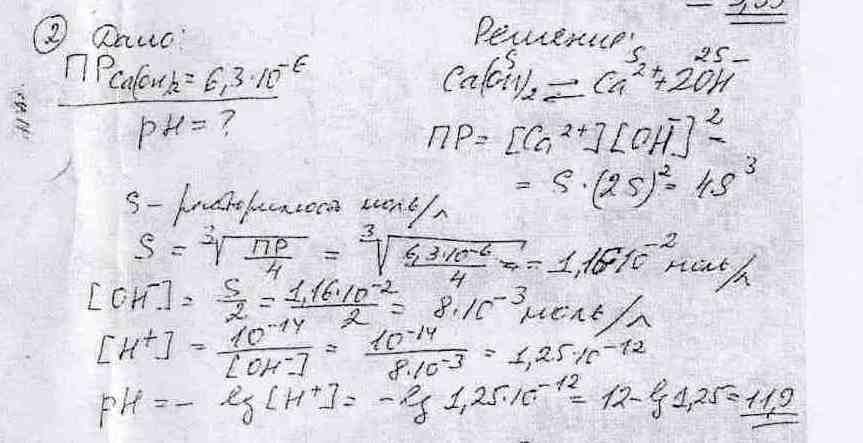 ② Дано:
ПР Ca(OH)₂ = 6,3·10⁻⁶
pH = ?
Решение:
S S 2S
Ca(OH)₂ ⇌ Ca²⁺ + 2OH⁻
ПР = [Ca²⁺][OH⁻]² =
= S·(2S)² = 4S³
S – растворимость моль/л
S = ∛(ПР/4) = ∛(6,3·10⁻⁶/4) = 1,16·10⁻² моль/л
[OH⁻] = S/2 = 1,16·10⁻²/2 = 8·10⁻³ моль/л
[H⁺] = 10⁻¹⁴/[OH⁻] = 10⁻¹⁴/8·10⁻³ = 1,25·10⁻¹²
pH = – lg [H⁺] = –lg 1,25·10⁻¹² = 12–lg 1,25 = 11,9